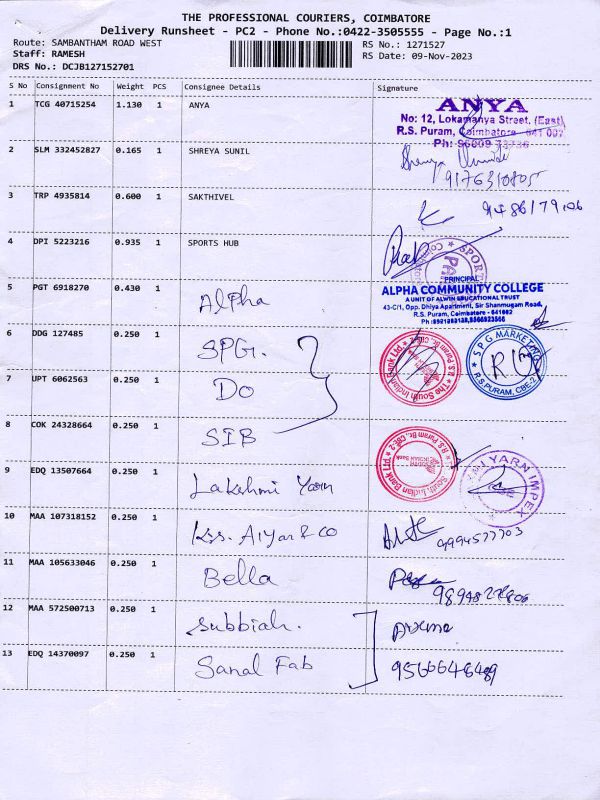 THE PROFESSIONAL COURIERS, COIMBATORE
Delivery Runsheet - PC2 - Phone No.:0422-3505555 - Page No.:1
Route: SAMBANTHAM ROAD WEST
RS No.: 1271527
Staff: RAMESH
RS Date: 09-Nov-2023
DRS No.: DCJB127152701
S No Consignment No Weight PCS Consignee Details Signature
1 TCG 40715254 1.130 1 ANYA
ANYA
No: 12, Lokamanya Street, (East)
R.S. Puram, Coimbatore - 641 002
Ph: 96009
2 SLM 332452827 0.165 1 SHREYA SUNIL
9176310805
3 TRP 4935814 0.600 1 SAKTHIVEL
4 DPI 5223216 0.935 1 SPORTS HUB
SPORTS
PRINCIPAL
5 PGT 6918270 0.430 1 Alpha
ALPHA COMMUNITY COLLEGE
A UNIT OF ALWIN EDUCATIONAL TRUST
43-C/1, Opp. Dhiya Apartment, Sir Shanmugam Road,
R.S. Puram, Coimbatore - 641002
6 DDG 127485 0.250 1 SPG.
The South Indian Bank Ltd.
SPG MARKETING
R.S PURAM, CBE-2
7 UPT 6062563 0.250 1 DO
8 COK 24328664 0.250 1 SIB
South Indian Bank Ltd
R.S. Puram Br, CBE-2
9 EDQ 13507664 0.250 1 Lakshmi Yarn
YARN IMPEX
10 MAA 107318152 0.250 1 Kss. Aiyar & co
9994577703
11 MAA 105633046 0.250 1 Bella
12 MAA 572500713 0.250 1 Subbiah.
13 EDQ 14370097 0.250 1 Sanal Fab